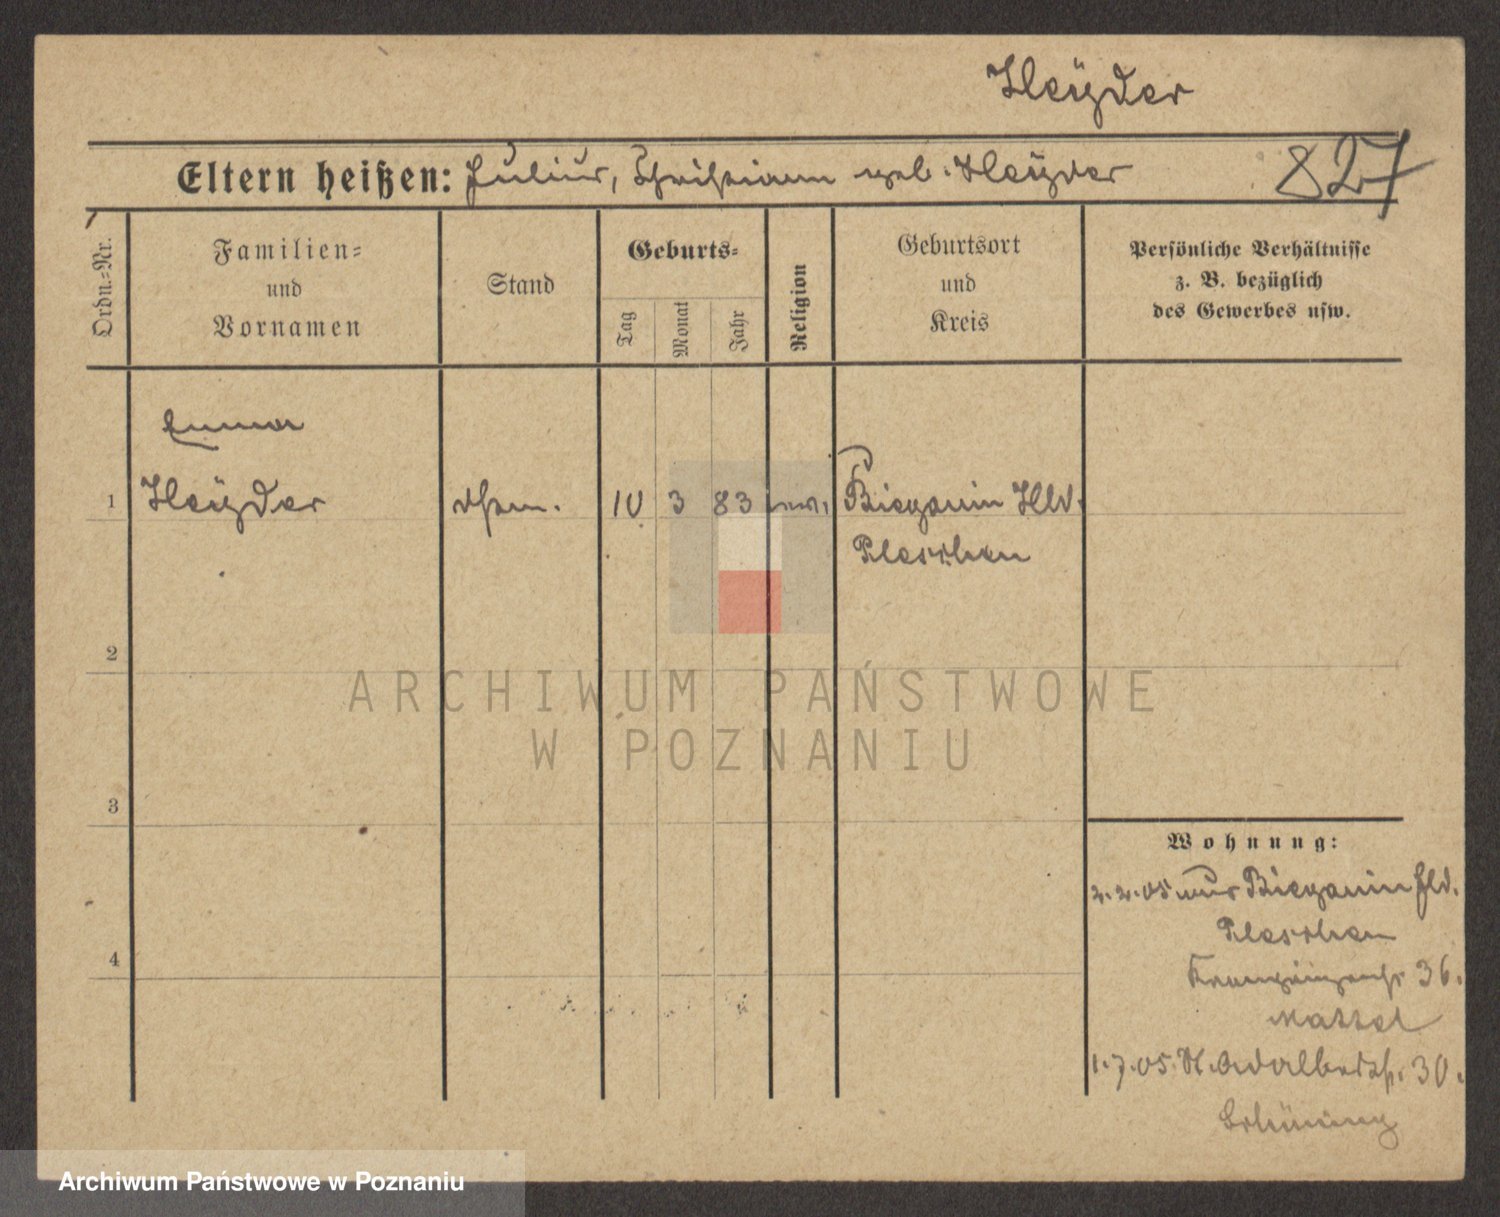 Heÿder
827
Eltern heißen: Julius, Christiane geb. Heÿder
Ordn.=Nr.
Familien=
und
Vornamen
Stand
Geburts=
Tag
Monat
Jahr
Religion
Geburtsort
und
Kreis
Persönliche Verhältnisse
z. B. bezüglich
des Gewerbes usw.
Emma
1 Heÿder 10 3 83 Bieganin Hld.
Pleschen
2
3
4
Wohnung:
2.2.05 aus Bieganin Hld.
Pleschen
36.
1.7.05. St. Adalbertstr. 30.
ARCHIWUM PAŃSTWOWE
W POZNANIU
Archiwum Państwowe w Poznaniu